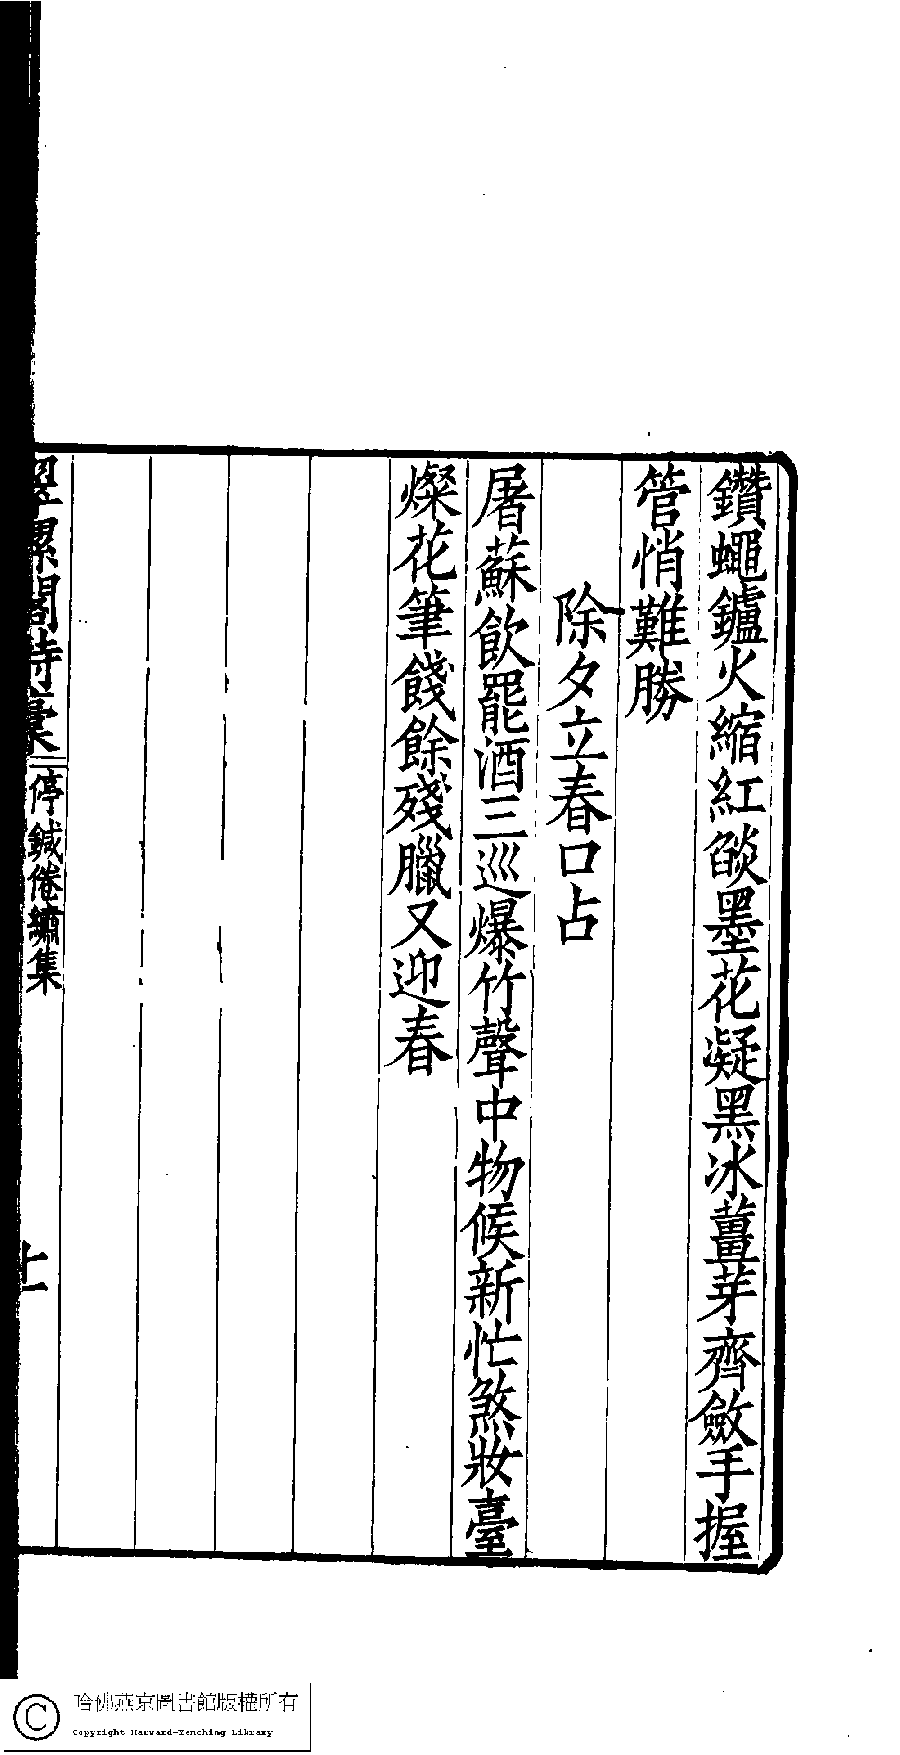 鑽蠅鑪火縮紅燄墨花凝黑冰薑芽齊斂手握
管悄難勝
除夕立春口占
屠蘇飲罷酒三巡爆竹聲中物候新忙煞妝臺
燦花筆餞餘殘臘又迎春
翠螺閣詩稾
停鍼倦繡集
十
哈佛燕京圖書館版權所有
Copyright Harvard-Yenching Library